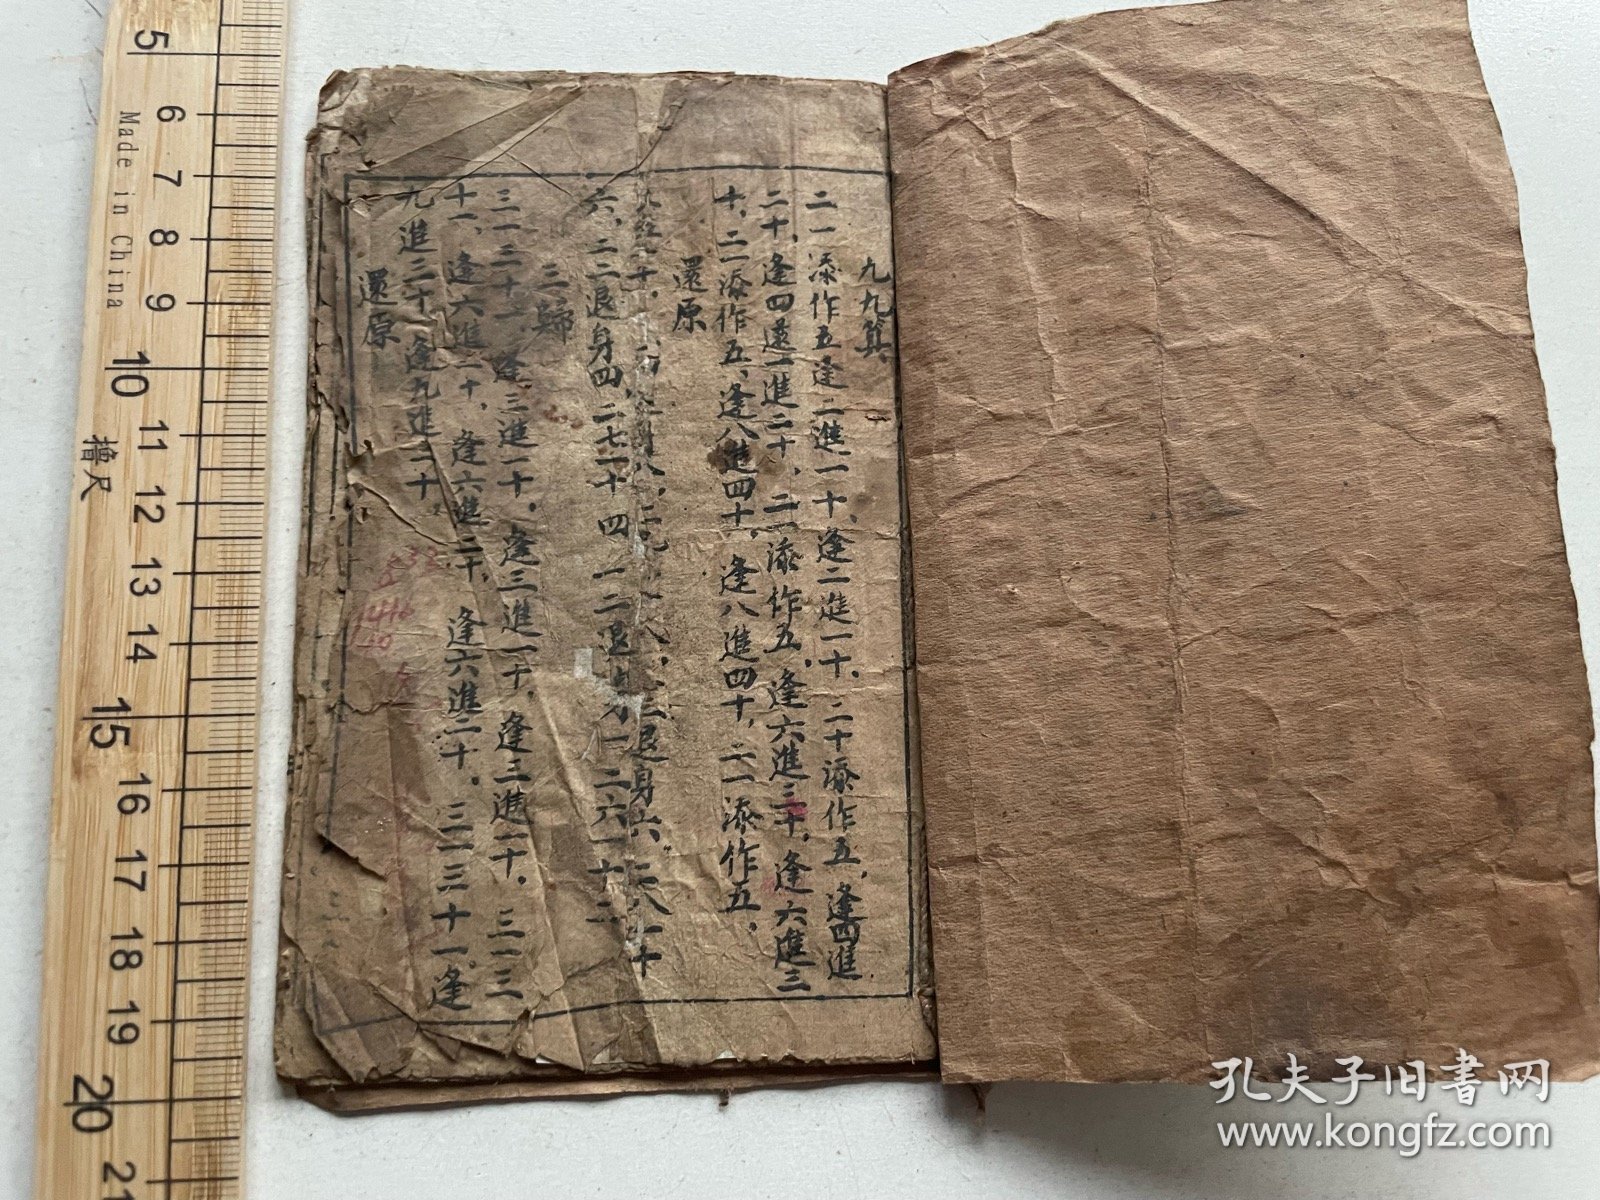 九九算
二一添作五逢二進一十、逢二進一十、二十添作五、逢四進
二十、逢四進二十、二一添作五、逢六進三十、逢六進三
十、二一添作五、逢八進四十、逢八進四十、二一添作五、
還原
退身六、二八一十
六、二三退身四、二七一十四、一二退身一二六一十二
三歸
三一三十一、逢三進一十、逢三進一十、逢三進一十、三一三
十一、逢六進二十、逢六進二十、逢六進二十。三一三十一、逢
九進三十、逢九進三十
還原
5
6
7
8
9
10
11
12
13
14
15
16
17
18
19
20
21
Made in China
撸尺
孔夫子旧書网
www.kongfz.com